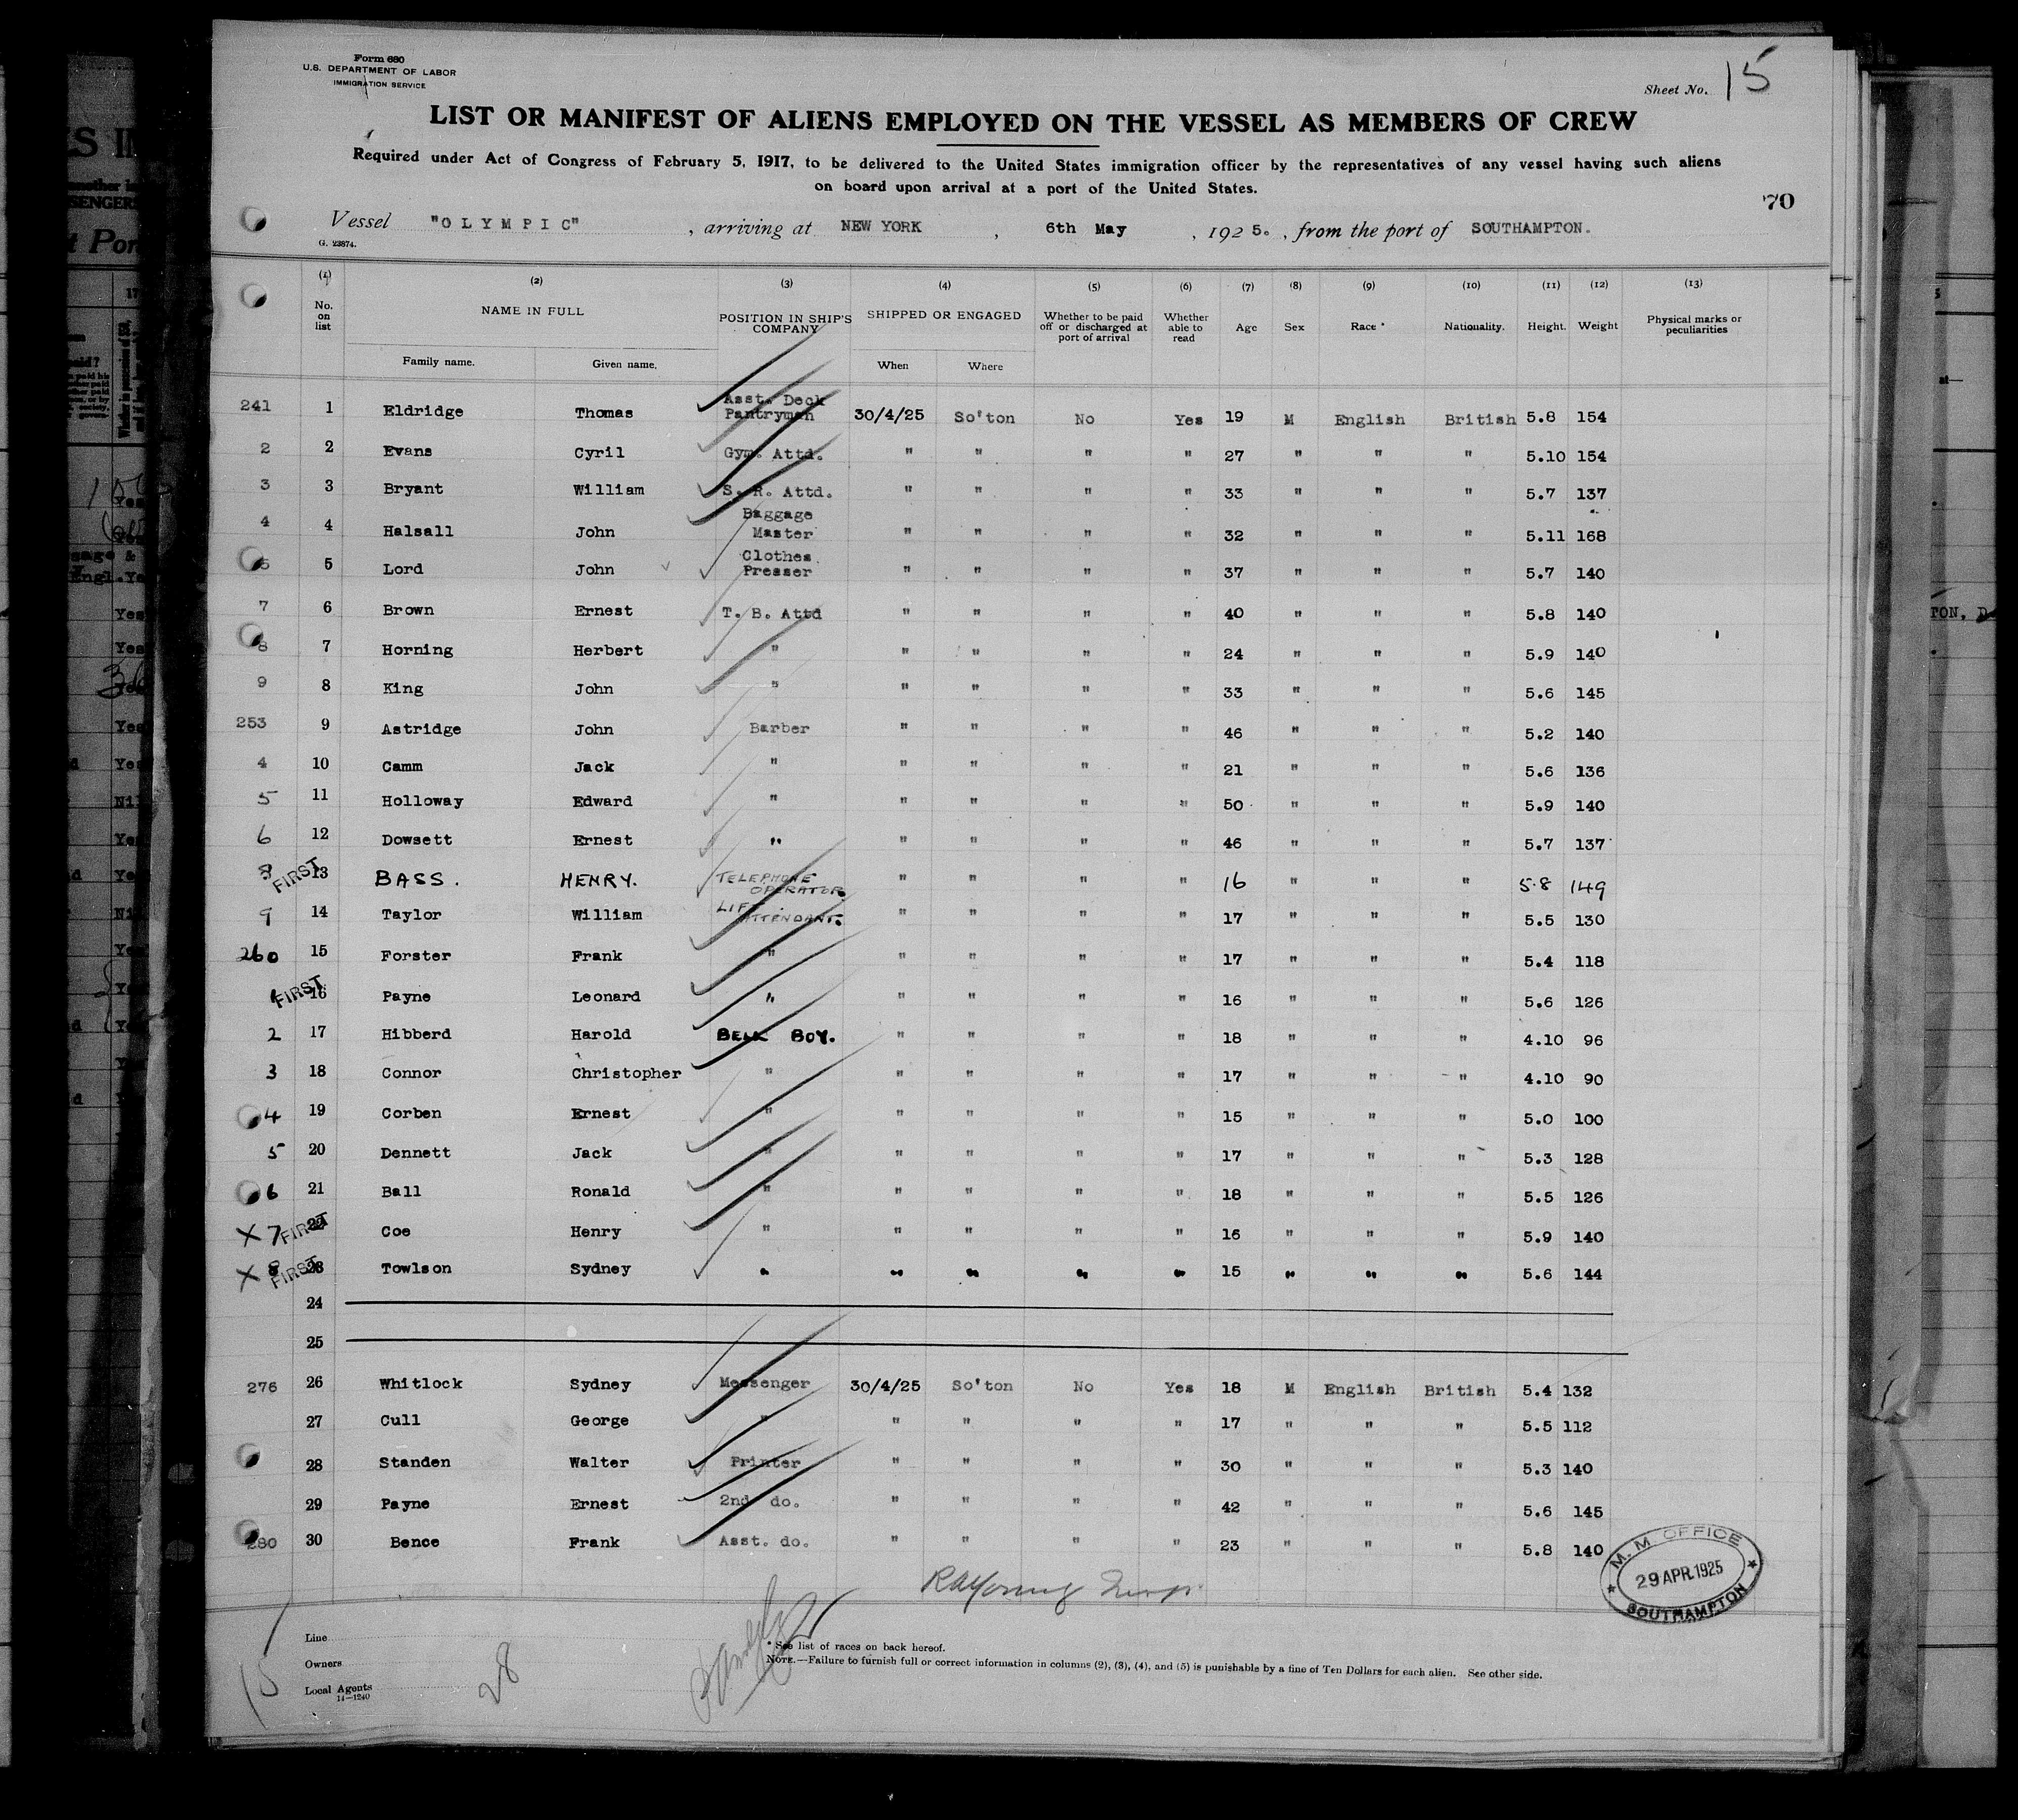 Form 680
U.S. DEPARTMENT OF LABOR
IMMIGRATION SERVICE
Sheet No. 15
LIST OR MANIFEST OF ALIENS EMPLOYED ON THE VESSEL AS MEMBERS OF CREW
Required under Act of Congress of February 5, 1917, to be delivered to the United States immigration officer by the representatives of any vessel having such aliens
on board upon arrival at a port of the United States.
70
Vessel "OLYMPIC", arriving at NEW YORK, 6th May, 1925., from the port of SOUTHAMPTON.
G. 23874.
(1) (2) (3) (4) (5) (6) (7) (8) (9) (10) (11) (12) (13)
No. on list NAME IN FULL POSITION IN SHIP'S COMPANY SHIPPED OR ENGAGED Whether to be paid off or discharged at port of arrival Whether able to read Age Sex Race * Nationality. Height. Weight Physical marks or peculiarities
Family name. Given name. When Where
241 1 Eldridge Thomas Asst. Deck Pantryman 30/4/25 So'ton No Yes 19 M English British 5.8 154
2 2 Evans Cyril Gym. Attd. " " " " 27 " " " 5.10 154
3 3 Bryant William S. R. Attd. " " " " 33 " " " 5.7 137
4 4 Halsall John Baggage Master " " " " 32 " " " 5.11 168
5 5 Lord John Clothes Presser " " " " 37 " " " 5.7 140
7 6 Brown Ernest T. B. Attd " " " " 40 " " " 5.8 140
8 7 Horning Herbert " " " " " 24 " " " 5.9 140
9 8 King John " " " " " 33 " " " 5.6 145
253 9 Astridge John Barber " " " " 46 " " " 5.2 140
4 10 Camm Jack " " " " " 21 " " " 5.6 136
5 11 Holloway Edward " " " " " 50 " " " 5.9 140
6 12 Dowsett Ernest " " " " " 46 " " " 5.7 137
8 FIRST 13 BASS. HENRY. TELEPHONE OPERATOR " " " " 16 " " " 5.8 149
9 14 Taylor William LIFT ATTENDANT. " " " " 17 " " " 5.5 130
260 15 Forster Frank " " " " " 17 " " " 5.4 118
1 FIRST 16 Payne Leonard " " " " " 16 " " " 5.6 126
2 17 Hibberd Harold BELL BOY. " " " " 18 " " " 4.10 96
3 18 Connor Christopher " " " " " 17 " " " 4.10 90
4 19 Corben Ernest " " " " " 15 " " " 5.0 100
5 20 Dennett Jack " " " " " 17 " " " 5.3 128
6 21 Ball Ronald " " " " " 18 " " " 5.5 126
X 7 FIRST 22 Coe Henry " " " " " 16 " " " 5.9 140
X 8 FIRST 23 Towlson Sydney " " " " " 15 " " " 5.6 144
24
25
276 26 Whitlock Sydney Messenger 30/4/25 So'ton No Yes 18 M English British 5.4 132
27 Cull George " " " " " 17 " " " 5.5 112
28 Standen Walter Printer " " " " 30 " " " 5.3 140
29 Payne Ernest 2nd do. " " " " 42 " " " 5.6 145
280 30 Bence Frank Asst. do. " " " " 23 " " " 5.8 140
M. M. OFFICE
29 APR. 1925
SOUTHAMPTON
Line
Owners
Local Agents
14—1240
15
28
* See list of races on back hereof.
NOTE.—Failure to furnish full or correct information in columns (2), (3), (4), and (5) is punishable by a fine of Ten Dollars for each alien. See other side.